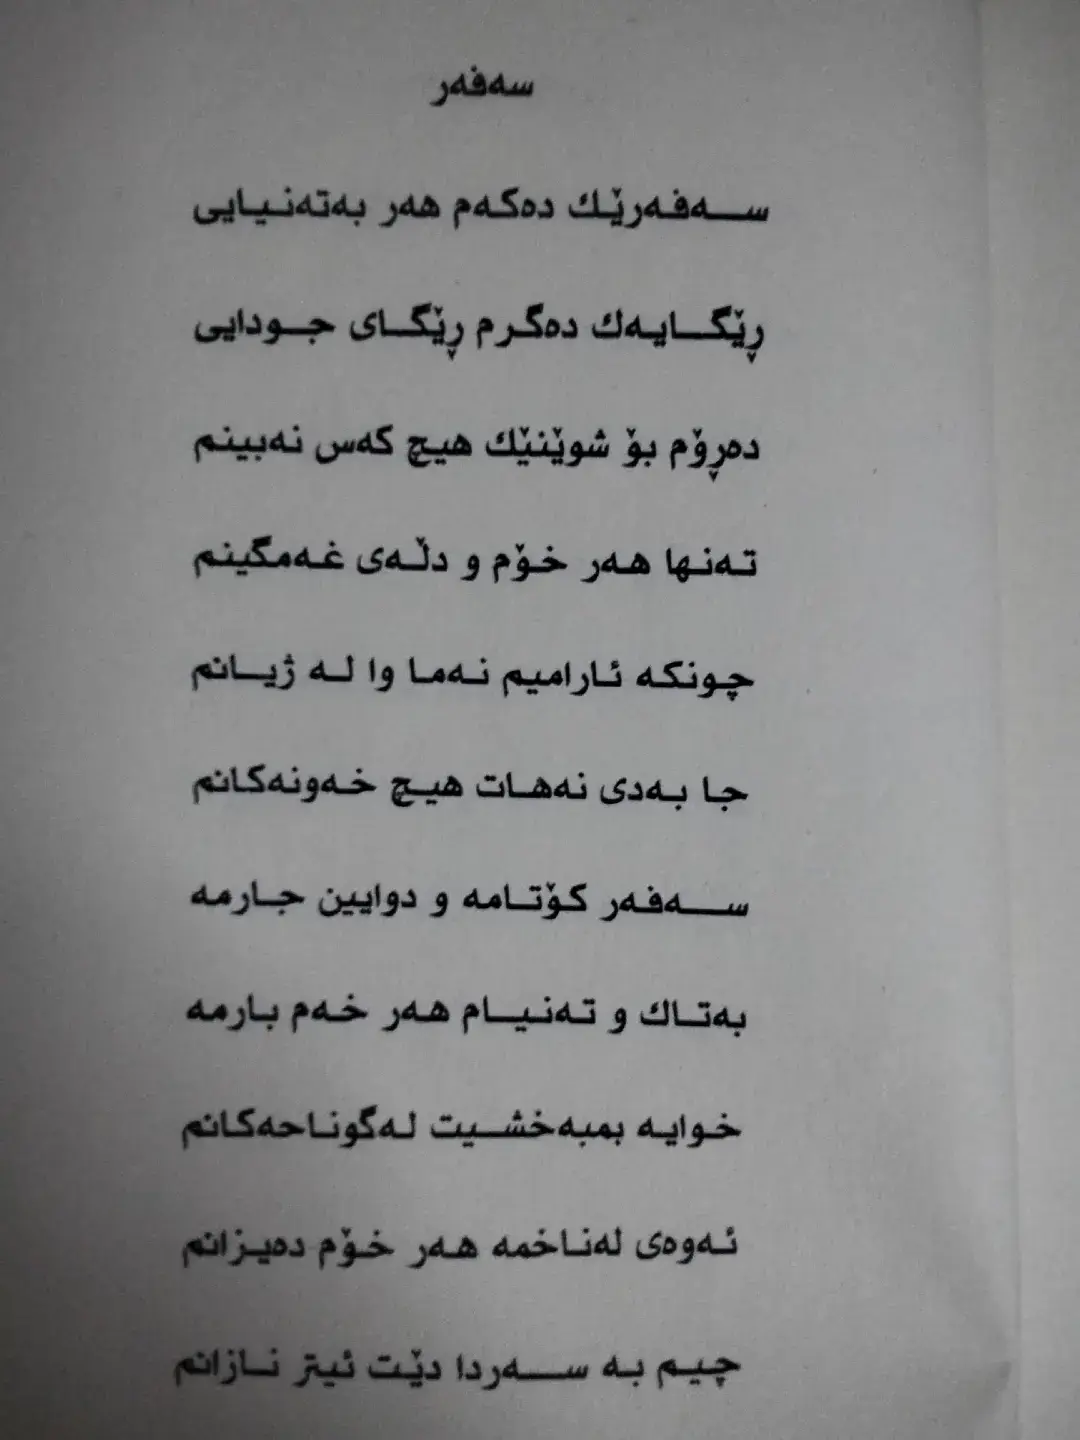 سەفەر
سەفەرێك دەكەم هەر بەتەنیایی
ڕێگایەك دەگرم ڕێگای جودایی
دەڕۆم بۆ شوێنێك هیچ كەس نەبینم
تەنها هەر خۆم و دڵەی غەمگینم
چونكە ئارامیم نەما وا لە ژیانم
جا بەدی نەهات هیچ خەونەكانم
سەفەر كۆتامە و دوایین جارمە
بەتاك و تەنیام هەر خەم بارمە
خوایە بمبەخشیت لەگوناحەكانم
ئەوەی لەناخمە هەر خۆم دەیزانم
چیم بە سەردا دێت ئیتر نازانم